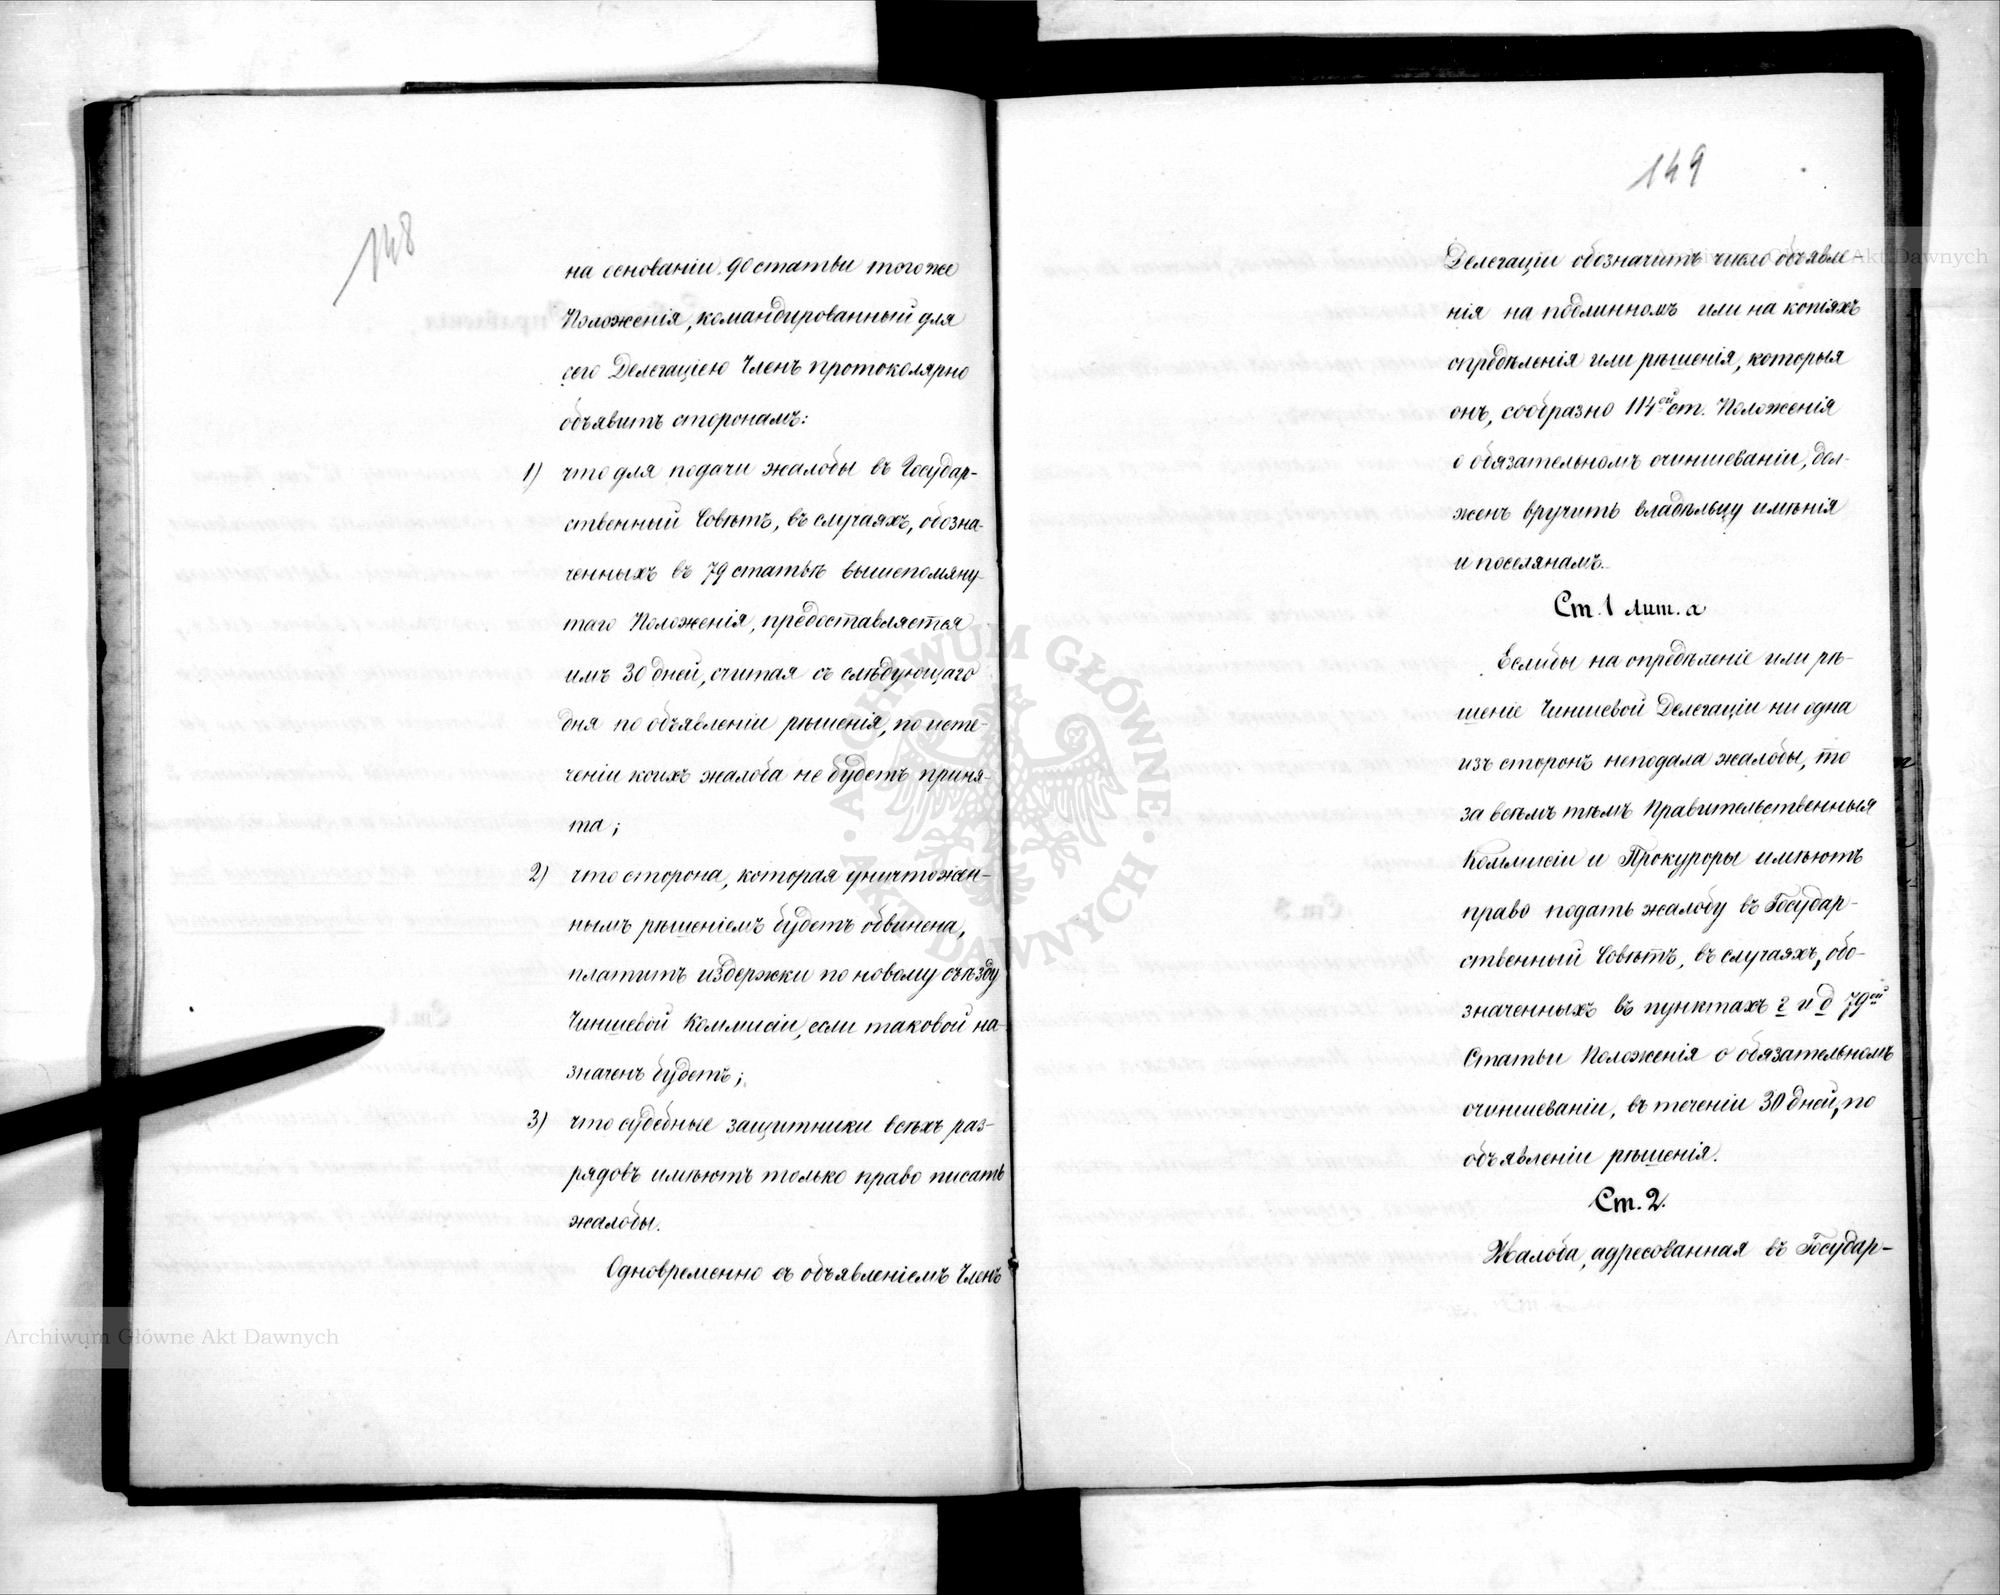 148
на основаніи 90 статьи того же
Положенія, командированный для
сего Делегаціею Членъ протоколярно
объявитъ сторонамъ:
1) что для подачи жалобы въ Государ-
ственный Совѣтъ, въ случаяхъ, обозна-
ченныхъ въ 79 статьѣ вышепомяну-
таго Положенія, предоставляется
имъ 30 дней, считая съ слѣдующаго
дня по объявленіи рѣшенія, по исте-
ченіи коихъ жалоба не будетъ приня-
та;
2) что сторона, которая уничтожен-
нымъ рѣшеніемъ будетъ обвинена,
платитъ издержки по новому съѣзду
Чиншевой Коммисіи, если таковой на-
значенъ будетъ;
3) что судебные защитники всѣхъ раз-
рядовъ имѣютъ только право писать
жалобы.
Одновременно съ объявленіемъ Членъ
149
Делегаціи обозначитъ число объявле-
нія на подлинномъ или на копіяхъ
опредѣленія или рѣшенія, которыя
онъ, сообразно 114ой ст. Положенія
о обязательномъ очиншеваніи, дол-
женъ вручить владѣльцу имѣнія
и поселянамъ.
Ст. 1 лит. а
Еслибы на опредѣленіе или рѣ-
шеніе Чиншевой Делегаціи ни одна
изъ сторонъ неподала жалобы, то
за всѣмъ тѣмъ Правительственныя
Коммисіи и Прокуроры имѣютъ
право подать жалобу въ Государ-
ственный Совѣтъ, въ случаяхъ, обо-
значенныхъ въ пунктахъ г и д 79ой
Статьи Положенія о обязательномъ
очиншеваніи, въ теченіи 30 дней, по
объявленіи рѣшенія.
Ст. 2.
Жалоба, адресованная въ Государ-
Archiwum Główne Akt Dawnych
Archiwum Główne Akt Dawnych
ARCHIWUM GŁÓWNE AKT DAWNYCH